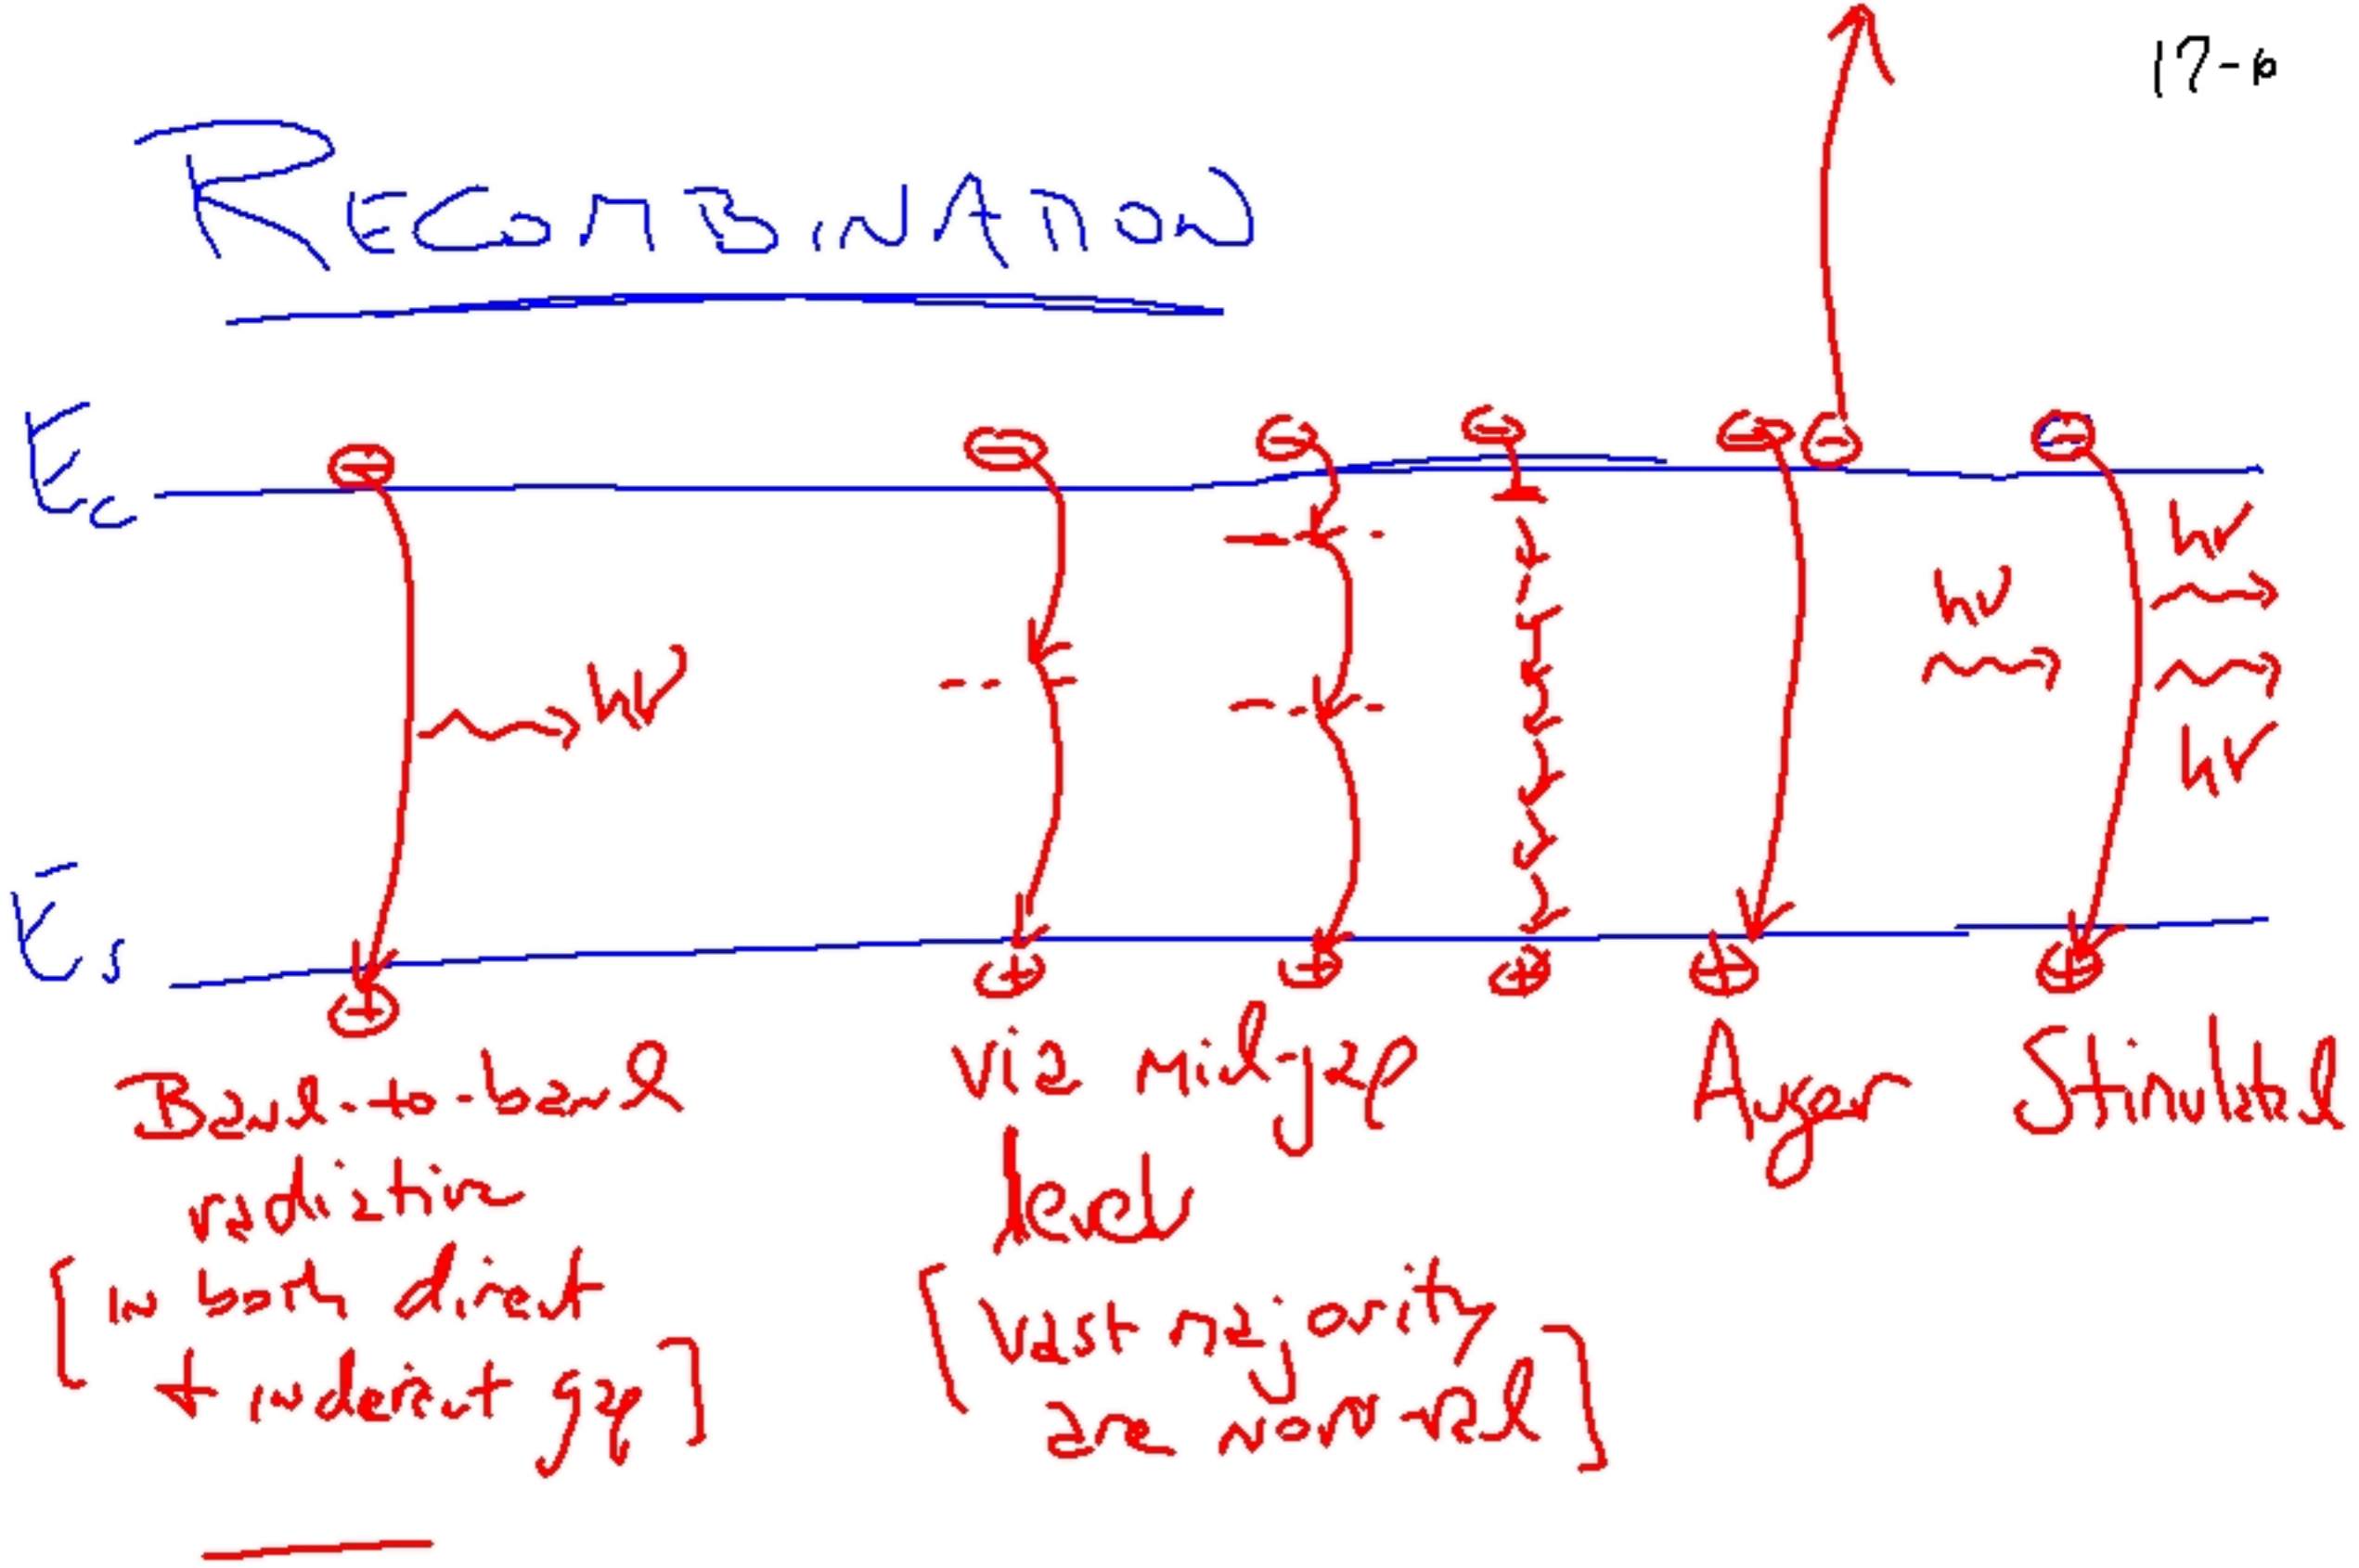 17-6
RECOMBINATION
Ec
hν
hν
hν
hν
Es
Band-to-band
radiative
[in both direct
+ inderect gap]
via mid-gap
level
[vast majority
are nonrad]
Auger
Stimulated